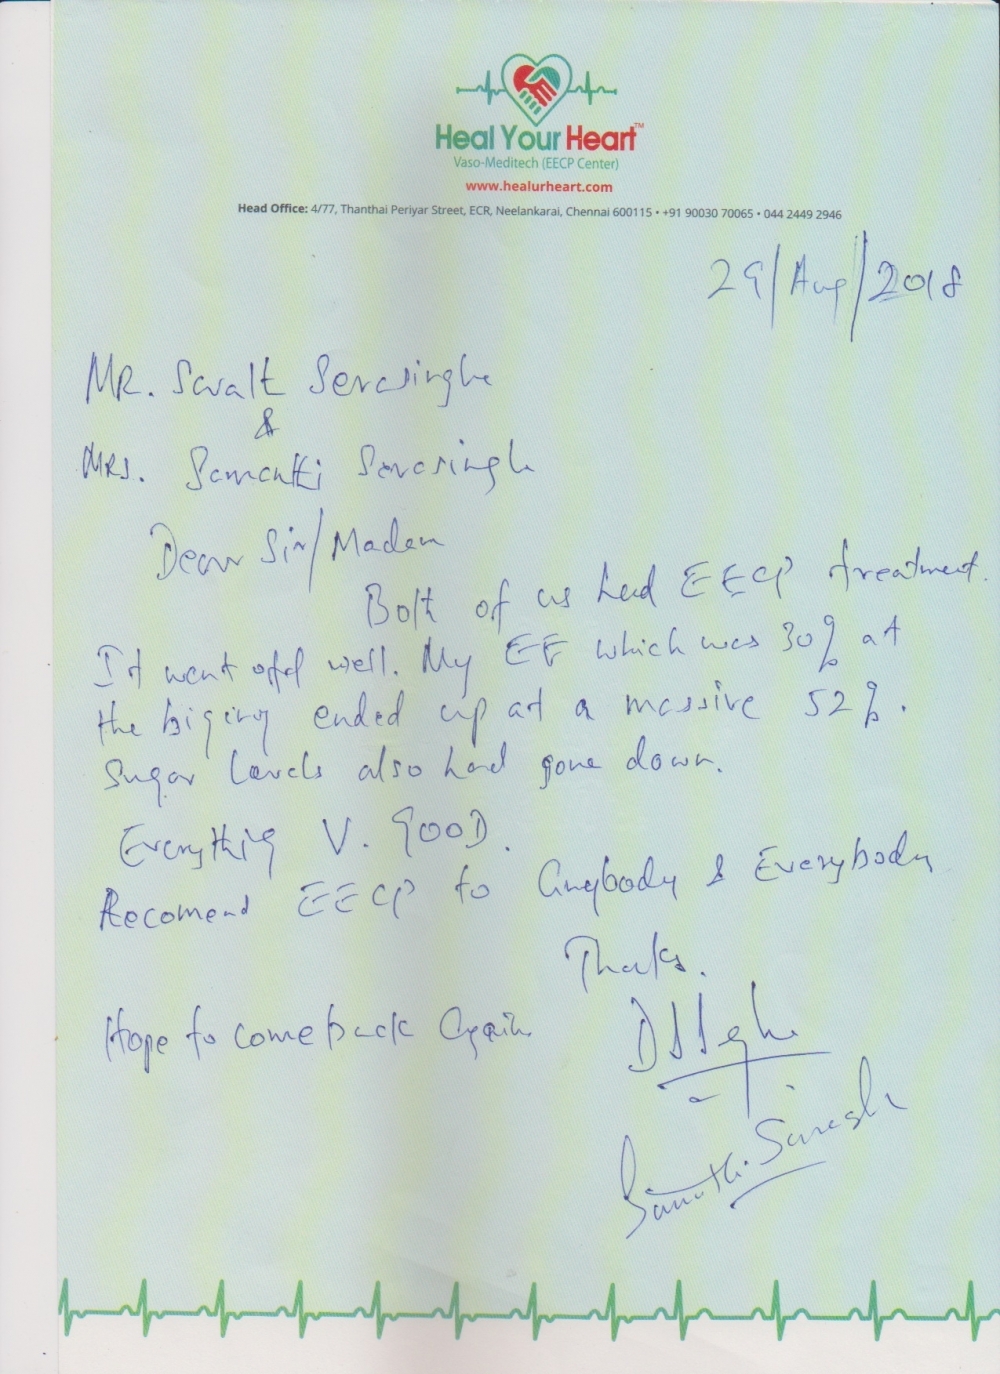 Heal Your Heart™
Vaso-Meditech (EECP Center)
www.healurheart.com
Head Office: 4/77, Thanthai Periyar Street, ECR, Neelankarai, Chennai 600115 • +91 90030 70065 • 044 2449 2946
29/Aug/2018
MR. Serasinghe
&
MRS. Serasinghe
Dear Sir/Madam
Both of us had EECP treatment.
It went off well. My EF which was 30% at
the ended up at a massive 52%.
Sugar Levels also had gone down.
Everything V. GOOD.
Recomend EECP to Anybody & Everybody
Thanks.
Hope to come back Again